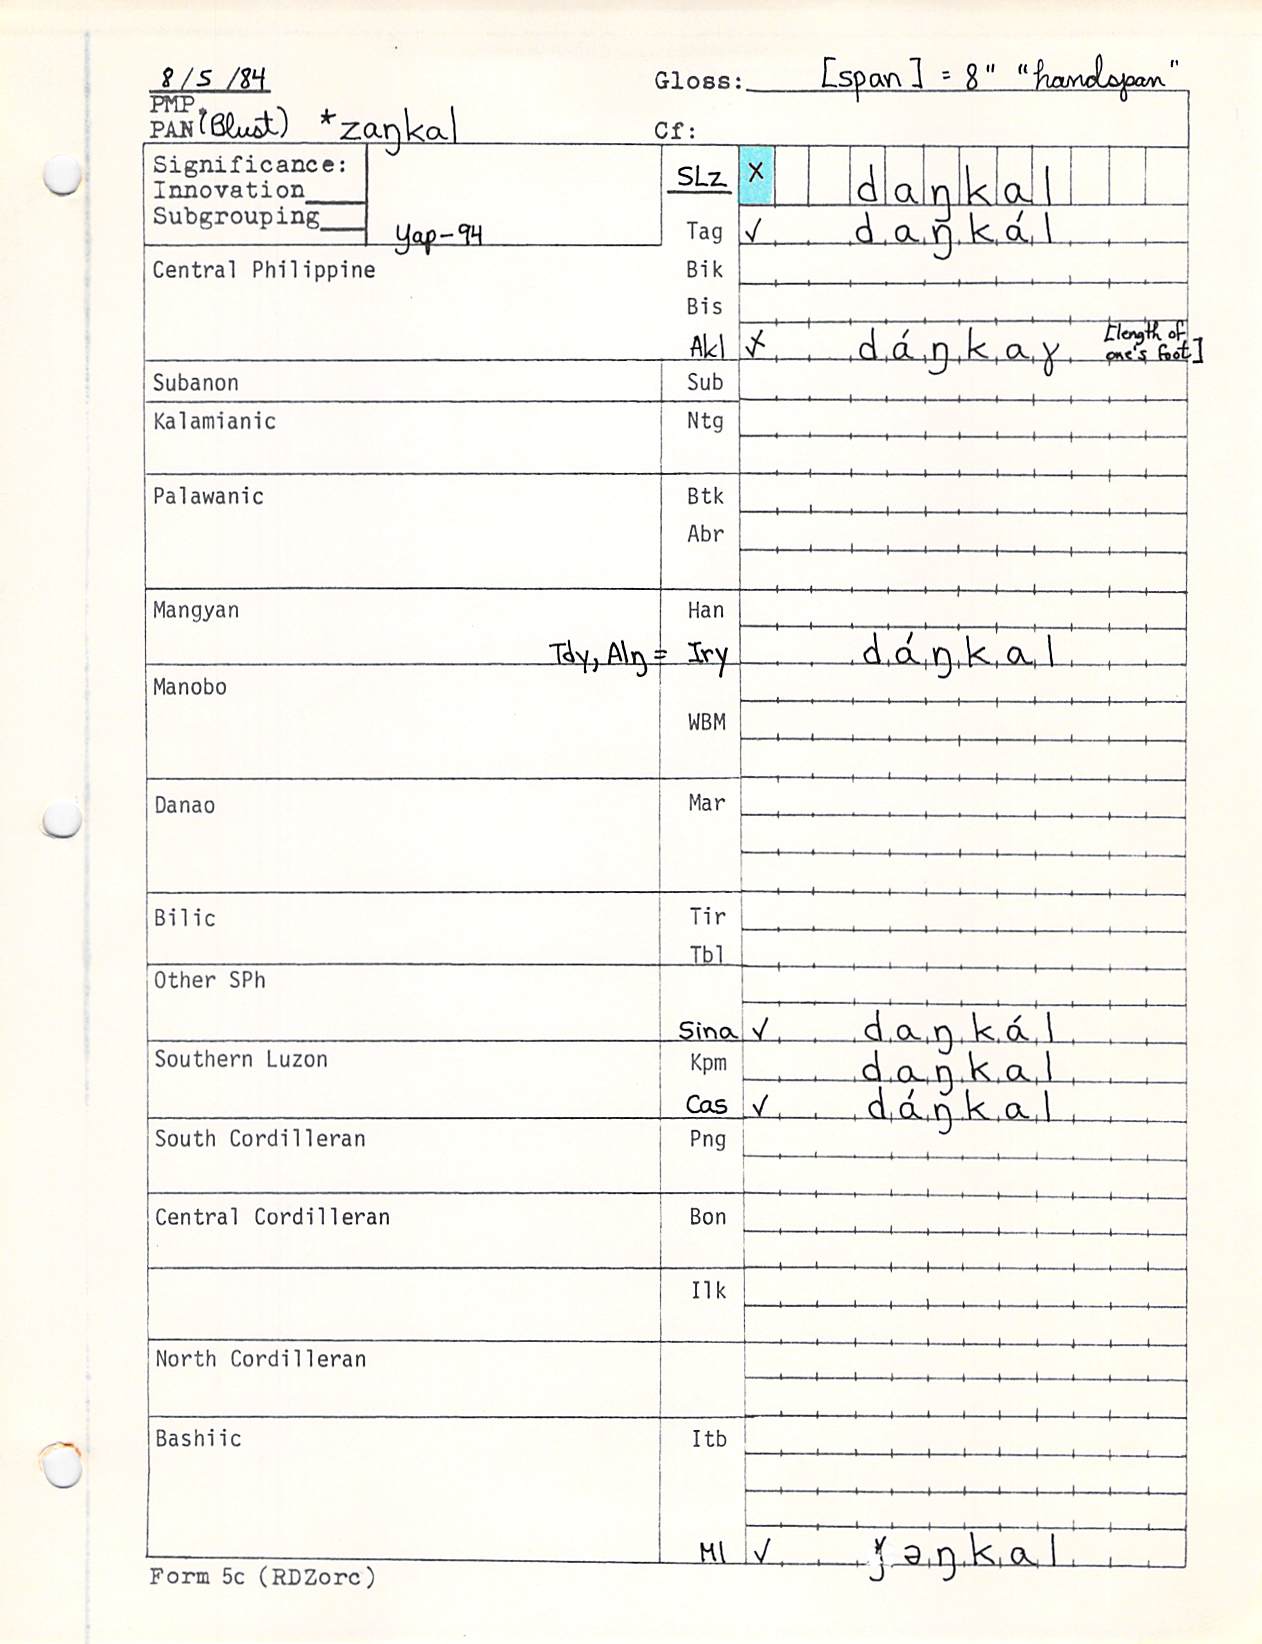 8/5/84 Gloss: [span] = 8" "handspan"
PMP
PAN (Blust) *zaŋkal Cf:
Significance: SLz x daŋkal
Innovation
Subgrouping yap-94 Tag ✓ daŋkál
Central Philippine Bik
Bis
Akl x dáŋkaɣ [length of one's foot]
Subanon Sub
Kalamianic Ntg
Palawanic Btk
Abr
Mangyan Han
Tdy, Alŋ = Iry dáŋkal
Manobo
WBM
Danao Mar
Bilic Tir
Tbl
Other SPh
Sina ✓ daŋkál
Southern Luzon Kpm daŋkal
Cas ✓ dáŋkal
South Cordilleran Png
Central Cordilleran Bon
Ilk
North Cordilleran
Bashiic Itb
Ml ✓ ǰəŋkal
Form 5c (RDZorc)